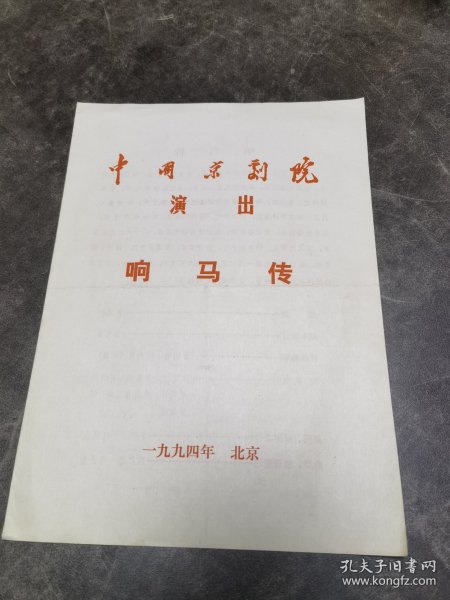 中国京剧院
演 出
响 马 传
一九九四年 北京
孔夫子旧书网
www.kongfz.com